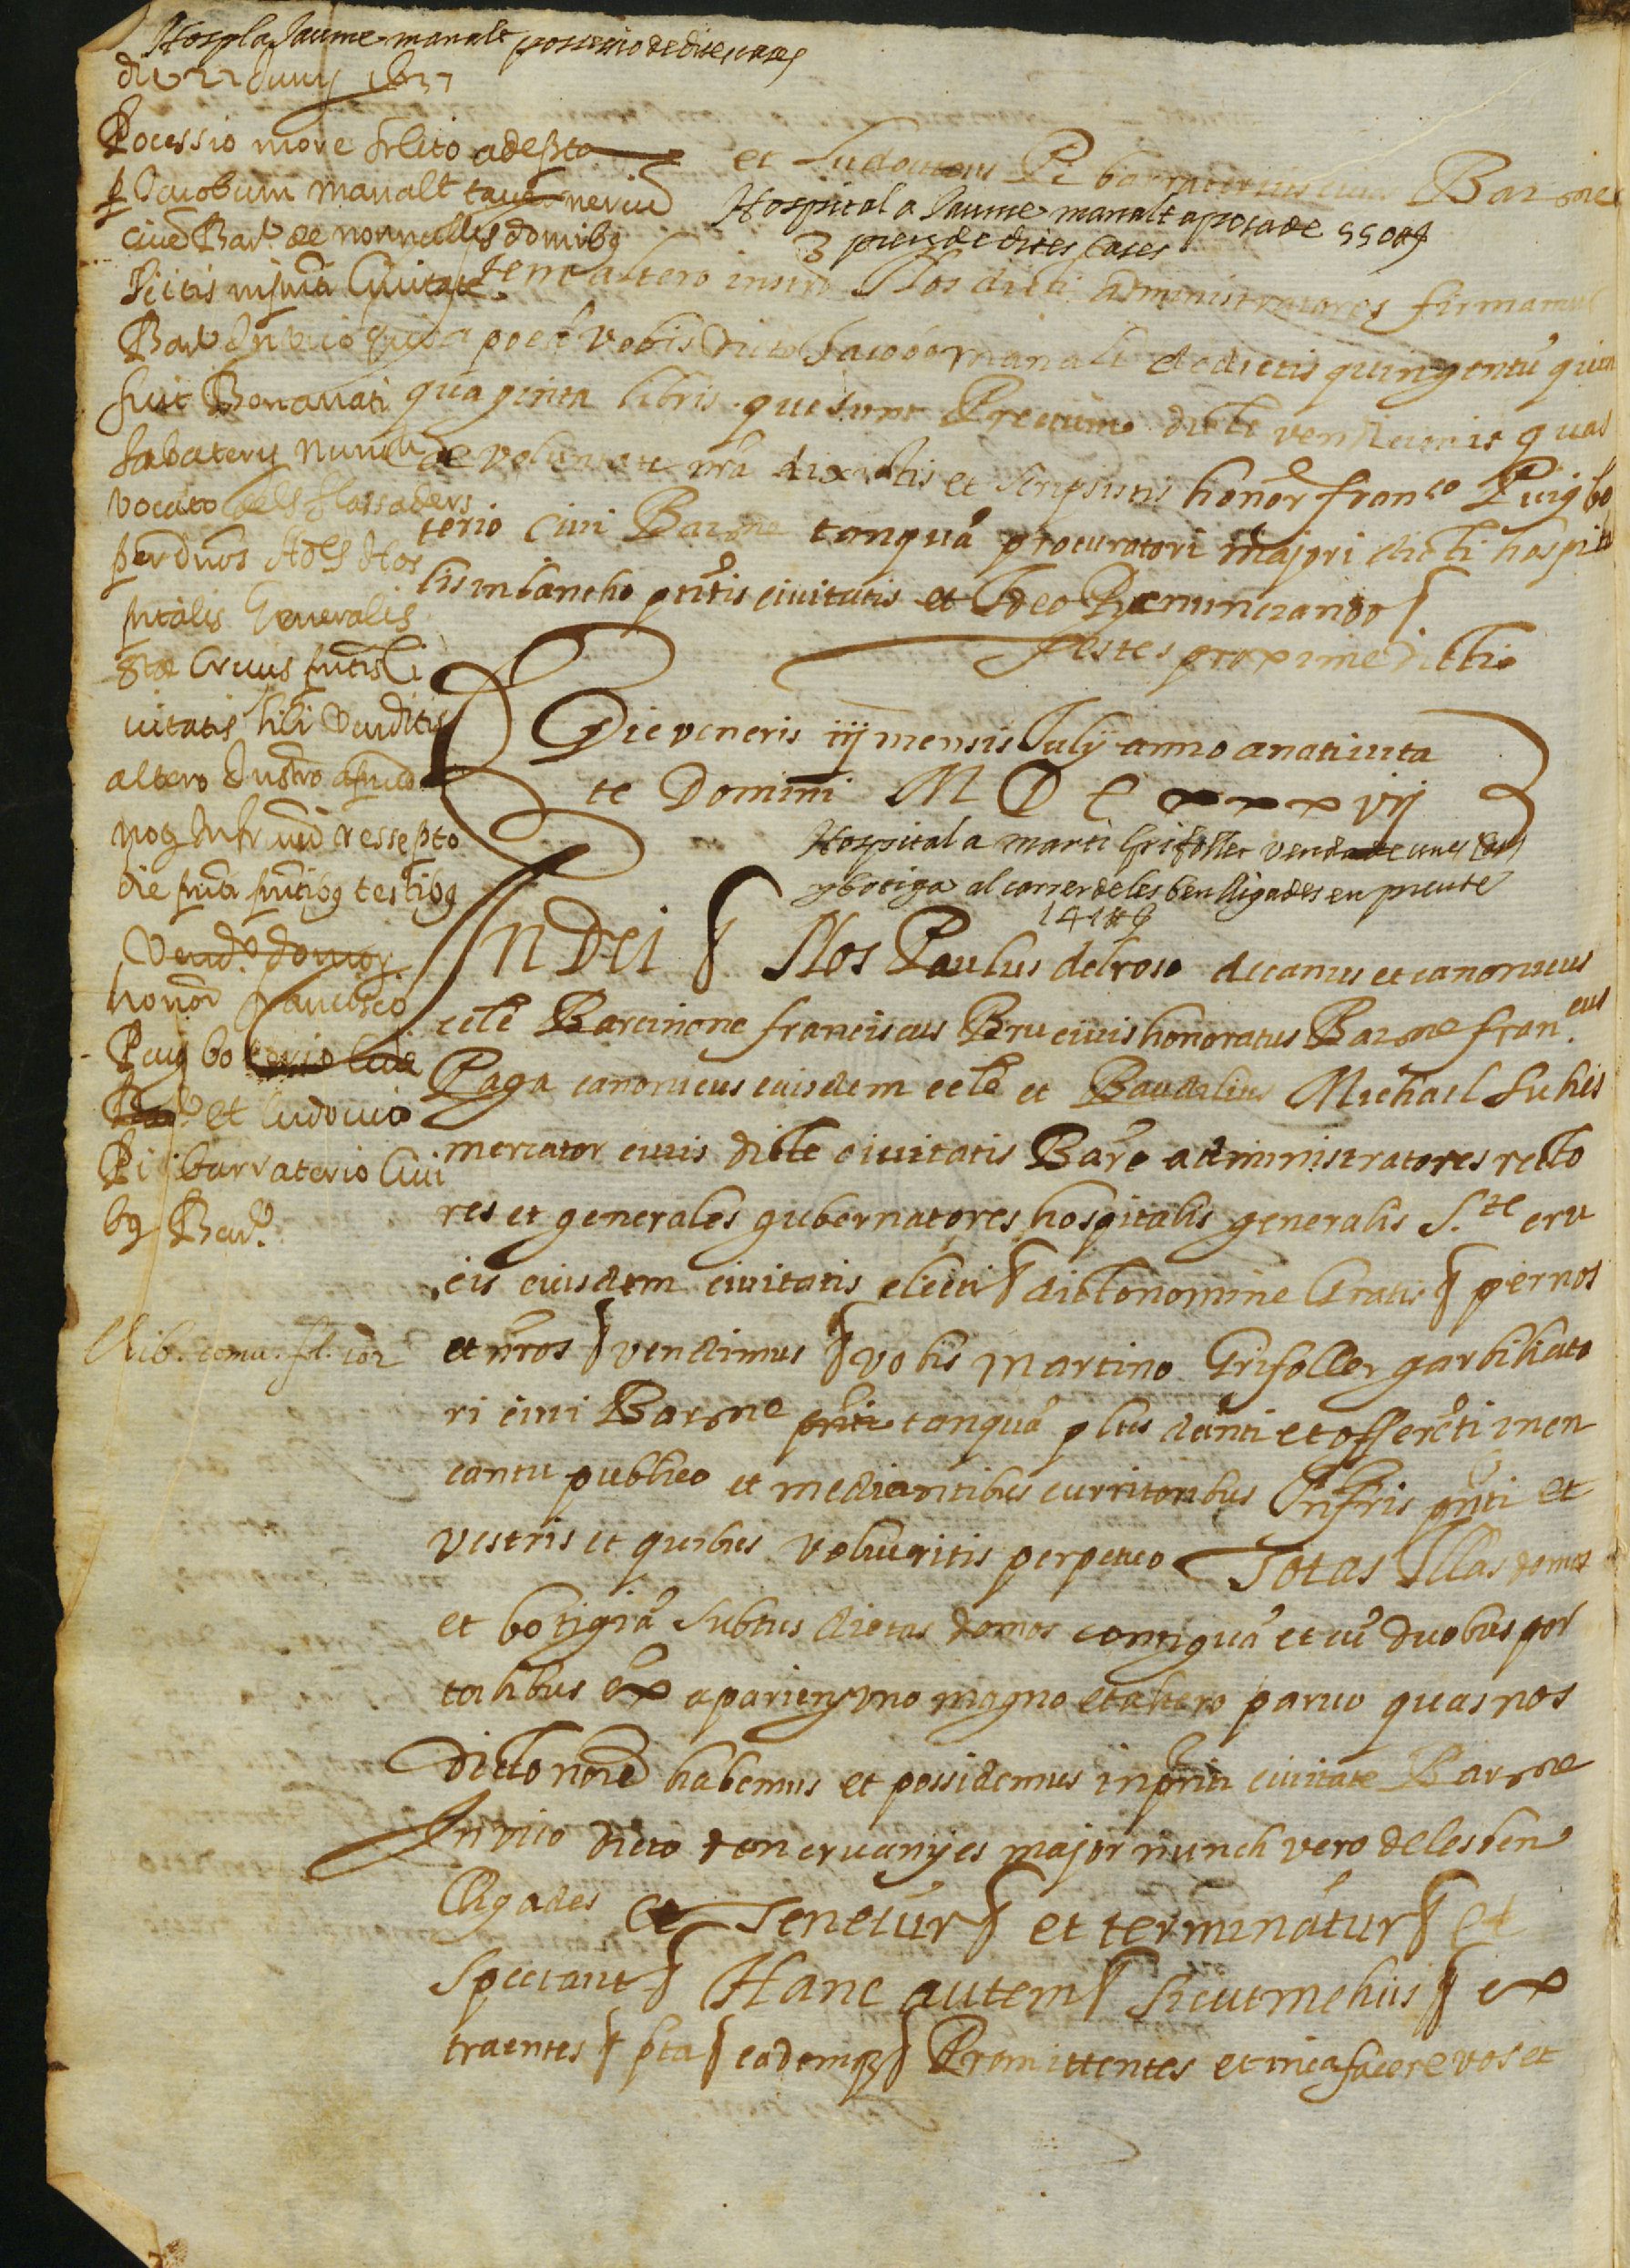 Hospl a Jaume manalt possessio de dites cases
die 22 Juny 1637
Pocessio more solito adepta
p Jacobum manalt tavernerium
civē Barᵉ de nonnullis domibꝫ
sitis in pn̄ti Civitate
Barᵉ In vico quia
fuit Bonanati
Sabaterij nunch
vocato dels flassaders
per dnos Adᵒˢ Hos
pitalis Generalis
Stæ Crucis pn̄tis Ci
vitatis sibi venditis
altero Instrō apud
nos Infrm̄ recepto
die pn̄ti pn̄tibꝫ testibꝫ
honor francisco
Puig boterio cive
Barᵉ et ludovico
Pi barraterio Civi
bꝫ Barᵉ
et Ludovicus Pi barraterius cives Barⁿᵉ
Hospital a Jaume manalt apocha de 550 ₶
preu de dites cases
Item altero instrō Nos dicti administratores firmamus
apocā vobis dicto Jacobo manalt de dictis quingentū quin
quaginta libris que sunt Precium dicte venditionis quas
de voluntate nrā dixistis et scripsistis honor franᶜᵒ Puig bo
terio civi Barⁿᵉ tanquā procuratori majori dicti hospita
lis in bancho pn̄tis civitatis et Ideo Renunciando ꝭ
Testes proxime dicti
Die veneris iij mensis July anno a nativita
te Domini M D C xxx vij
Hospital a marti Grifoller venda de unes cases
y botiga al carrer de les ben lligades en preu de
1418 ₶
In Dei ꝭ Nos Paulus del roso decanus et canonicus
ecclē Barcinone franciscus Bru civis honoratus Barⁿᵉ franᶜᵘˢ
Paga canonicus eiusdem ecclē et Baudilius Michael Suñes
mercator civis dicte civitatis Barᵉ administratores recto
res et generales gubernatores hospitalis generalis S.ᵗᵉ cru
cis eiusdem civitatis electi ꝭ dicto nomine Gratis ꝭ per nos
Llib. comu. fol. 102
et nros ꝭ vendimus ꝭ vobis Martino Grifoller garbillato
ri civi Barⁿᵉ pn̄ti tanquā plus danti et offerēti in en
cantu publico et mediantibus curritoribus Infrīs pn̄ti et
vestris et quibus volueritis perpetuo Totas Illas domos
et botigiā subtus dictas domos contiguā et cū duobus por
talibus ex aparieng uno magno et altero parvo quas nos
dicto noīe habemus et possidemus in pn̄ti civitate Barⁿᵉ
In vico dicto den cruanyes major nunch vero de les ben
lligades Et Tenetur ꝭ et terminātur ꝭ et
Spectant ꝭ Hanc autem ꝭ sicut melius ꝭ ex
traentes ꝭ pta ꝭ eademqꝫ ꝭ Promittentes et in ca facere vos et